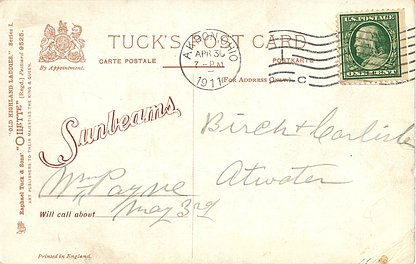 TUCK'S POST CARD
CARTE POSTALE
POSTKARTE
(For Address Only)
By Appointment.
AKRON, OHIO
APR 30
7 - PM
1911
C
U.S. POSTAGE
ONE CENT
"OLD HIGHLAND LADDIES" Series I.
Raphael Tuck & Sons' "OILETTE" [Regd.] Postcard 9525.
ART PUBLISHERS TO THEIR MAJESTIES THE KING & QUEEN.
Sunbeams
Birch & Carlisle
Atwater
Wm Payne
Will call about May 3rd
Printed in England.